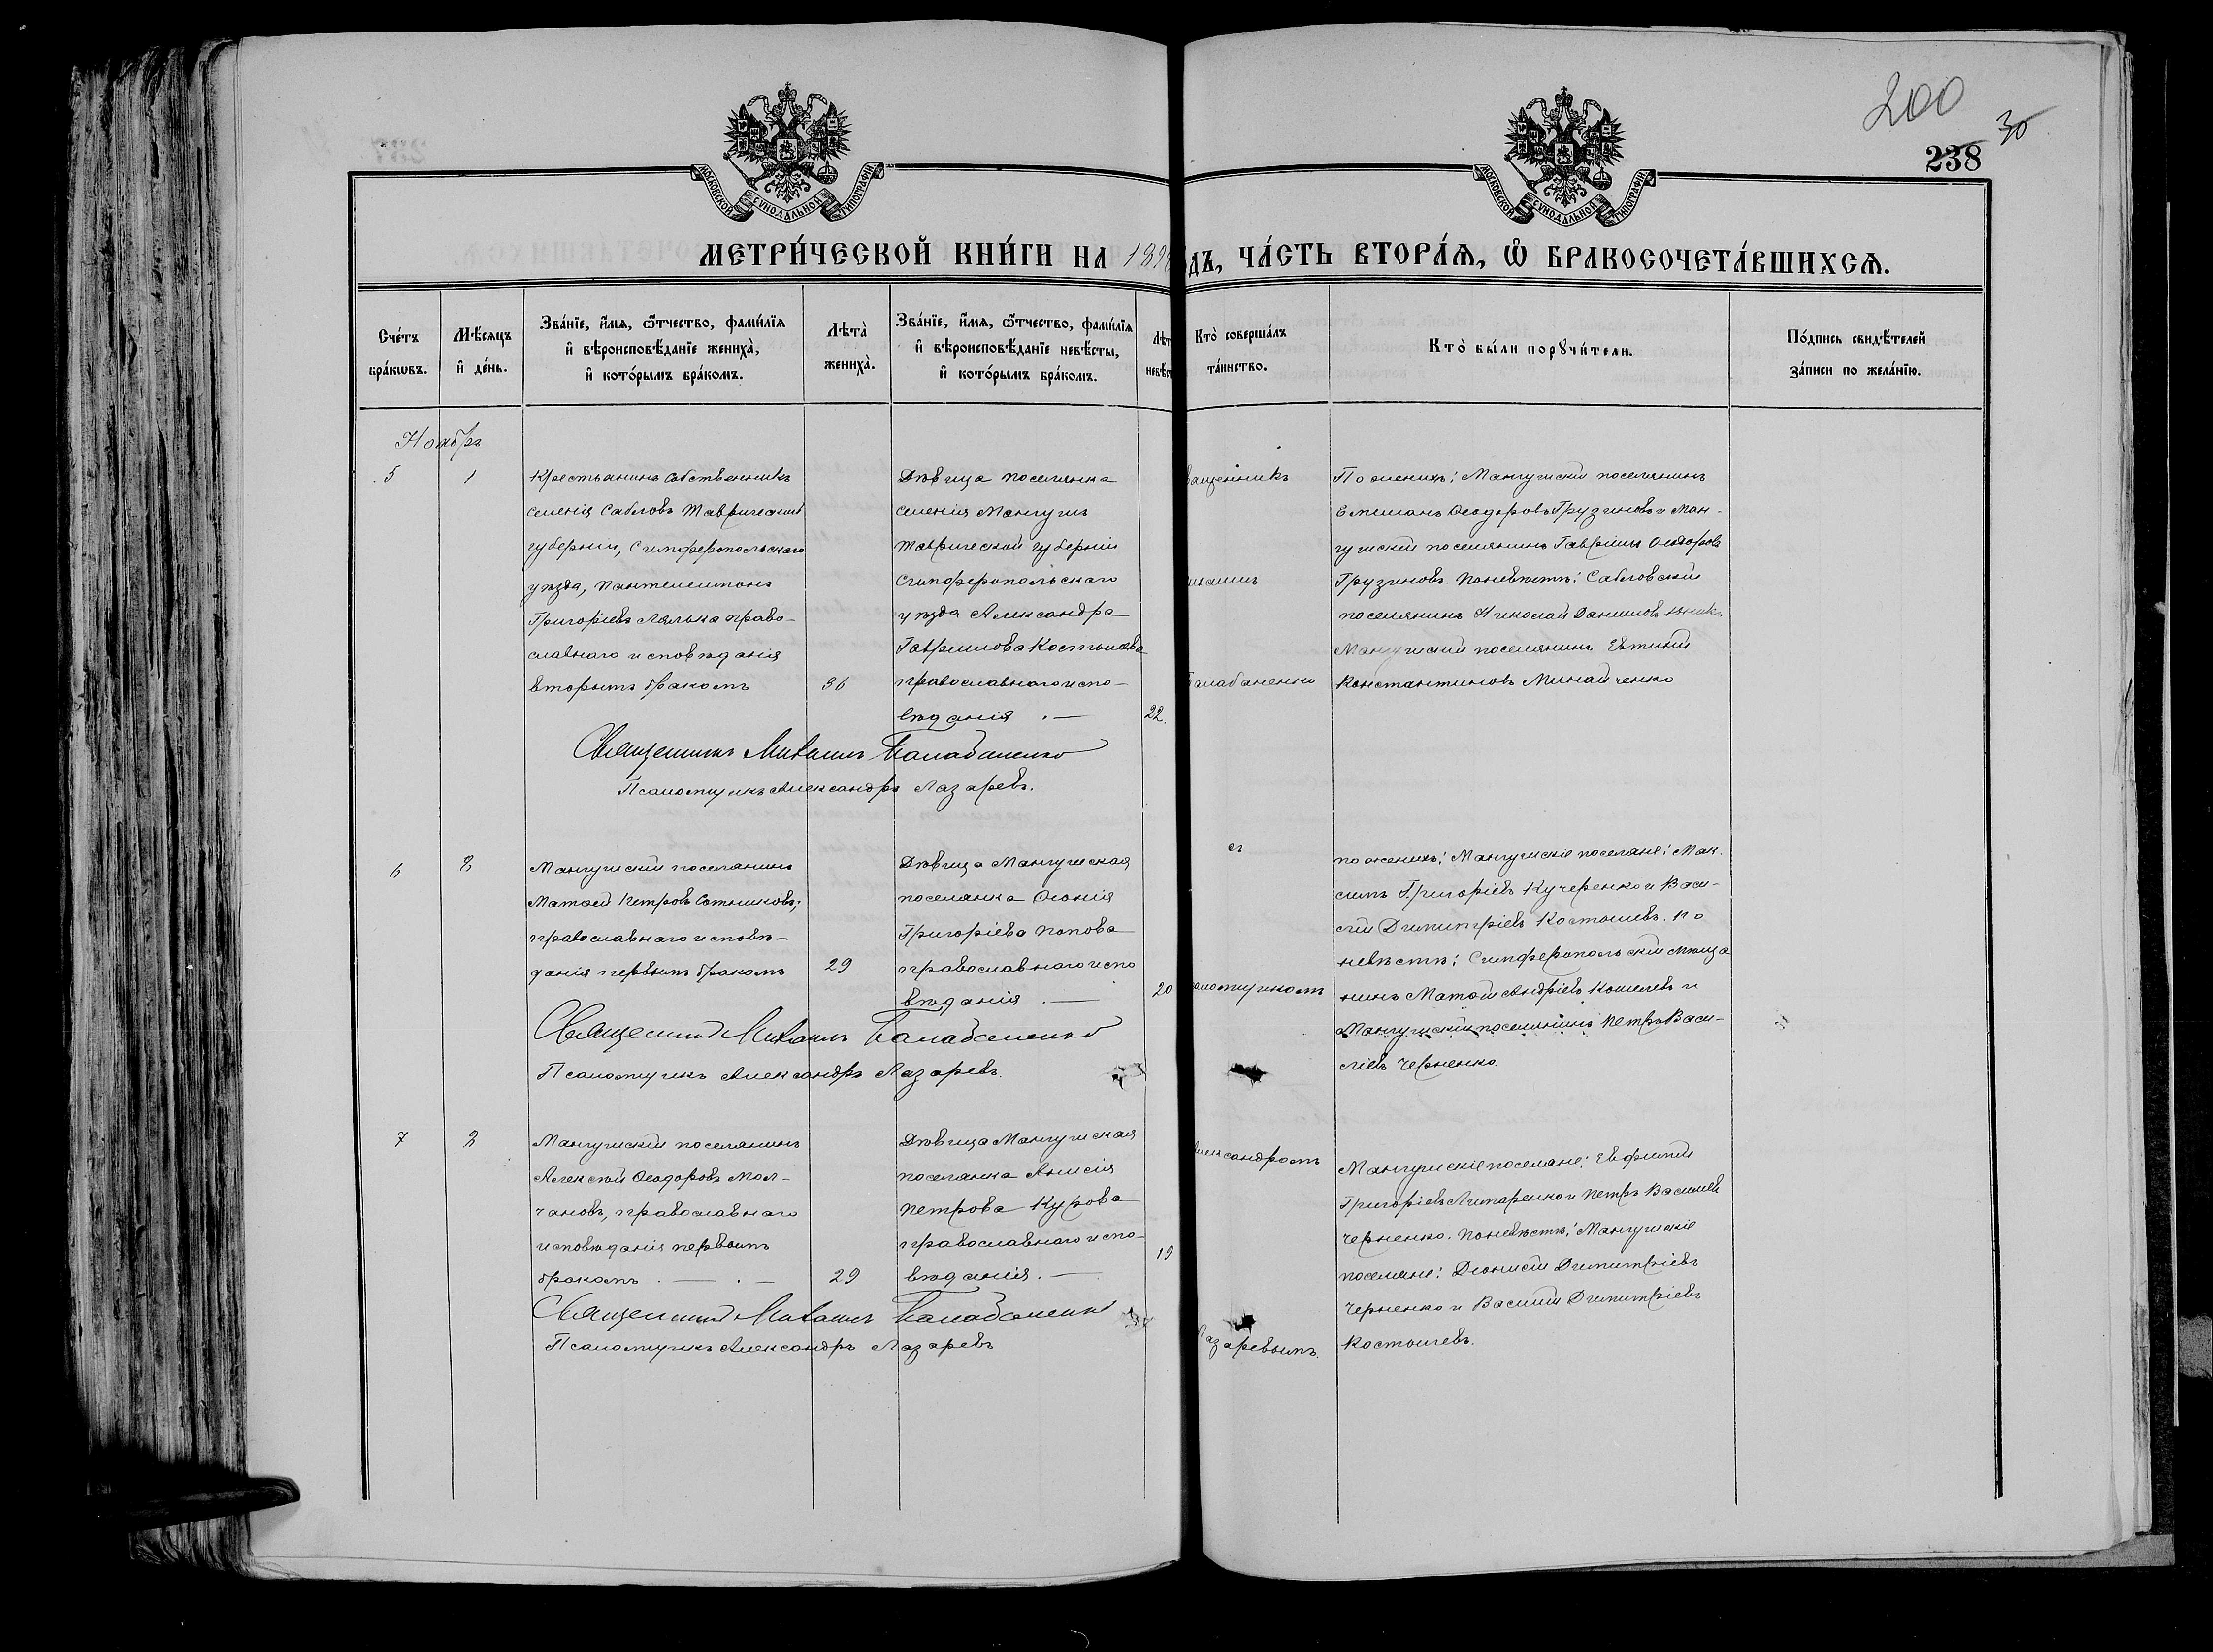 200
30
238
МОСКОВСКОЙ СУНОДАЛЬНОЙ ТИПОГРАФІИ
МОСКОВСКОЙ СУНОДАЛЬНОЙ ТИПОГРАФІИ
МЕТРИ́ЧЕСКОЙ КНИ́ГИ НА 189
дъ, ЧА́СТЬ ВТОРА́Ѧ, Ѽ БРАКОСОЧЕТА́ВШИХСѦ.
Сче́тъ бра́кѡвъ.
Мѣ́сѧцъ и҆ де́нь.
Зва́нїе, и҆́мѧ, ѻ҆́тчество, фами́лїѧ и҆ вѣроисповѣ́данїе жениха̀, и҆ кото́рымъ бра́комъ.
Лѣта̀ жениха̀.
Зва́нїе, и҆́мѧ, ѻ҆́тчество, фами́лїѧ и҆ вѣроисповѣ́данїе невѣ́сты, и҆ кото́рымъ бра́комъ.
Лѣт невѣс
Кто̀ соверша́лъ та́инство.
Кто̀ бы́ли порꙋчи́тели.
По́дпись свидѣ́телей за́писи по жела́нїю.
Ноябрь
5
1
Крестьянинъ собственникъ
селенія Сабловъ Таврической
губерніи, Симферопольскаго
уѣзда, Пантелеимонъ
Григоріевъ Лялька право-
славнаго исповѣданія
вторымъ бракомъ
36
Дѣвица поселянка
селенія Мангушъ
Таврической губерніи
Симферопольскаго
уѣзда Александра
Гаврилова Костышева
православнаго испо-
вѣданія . —
22.
ващенникъ
ихаилъ
Балабаненко
По женихѣ: Мангушскій поселянинъ
Емеліанъ Ѳеодоровъ Грузиновъ и Ман-
гушскій поселянинъ Гавріилъ Ѳеодоровъ
Грузиновъ. По невѣстѣ: Сабловскій
поселянинъ Николай Даниловъ
Мангушскій поселянинъ Евтихій
Константиновъ Минайченко
Священникъ Михаилъ Балабаненко
Псаломщикъ Александръ Лазаревъ.
6
2
Мангушскій поселянинъ
Матѳей Петровъ Сотниковъ,
православнаго исповѣ-
данія первымъ бракомъ
29
Дѣвица Мангушская
поселянка
Григоріева Попова
православнаго испо
вѣданія . —
20
съ
аломщикомъ
по женихѣ: Мангушскіе поселяне: Мак-
симъ Григоріевъ Кучеренко и Васи-
лій Димитріевъ Костышевъ. По
невѣстѣ: Симферопольскій мѣща
нинъ Матѳій Андріевъ Кошелевъ и
Мангушскій поселянинъ Петръ Васи-
ліевъ Черненко.
Священникъ Михаилъ Балабаненко
Псаломщикъ Александръ Лазаревъ.
7
2
Мангушскій поселянинъ
Алексѣй Ѳеодоровъ Мол-
чановъ, православнаго
исповѣданія первымъ
бракомъ . — . —
29
Дѣвица Мангушская
поселянка Анисія
Петрова Курова
православнаго испо-
вѣданія. —
19
лександромъ
Лазаревымъ.
Мангушскіе поселяне: Евфимій
Григоріевъ Литаренко и Петръ Василіев
Черненко. По невѣстѣ: Мангушскіе
поселяне: Діонисій Димитріевъ
Черненко и Василій Димитріевъ
Костышевъ.
Священникъ Михаилъ Балабаненко
Псаломщикъ Александръ Лазаревъ